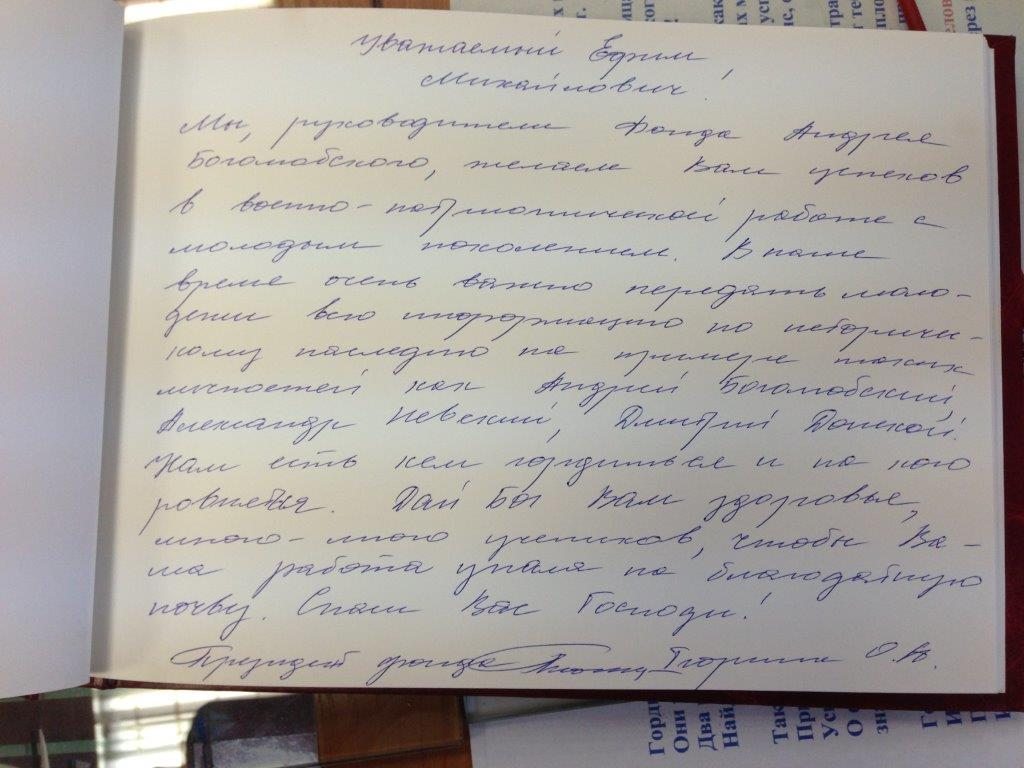 Уважаемый Ефим
Михайлович!
Мы, руководители Фонда Андрея
Боголюбского, желаем Вам успехов
в военно-патриотической работе с
молодым поколением. В наше
время очень важно передать моло-
дежи всю информацию по историчес-
кому наследию на примере таких
личностей как Андрей Боголюбский,
Александр Невский, Дмитрий Донской.
Нам есть кем гордиться и на кого
ровняться. Дай Бог Вам здоровья,
много-много учеников, чтобы Ва-
ша работа упала на благодатную
почву. Спаси Вас Господи!
Президент фонда О.А.
Горд
Они
Два
Най
Так
При
Усп
О с
зна